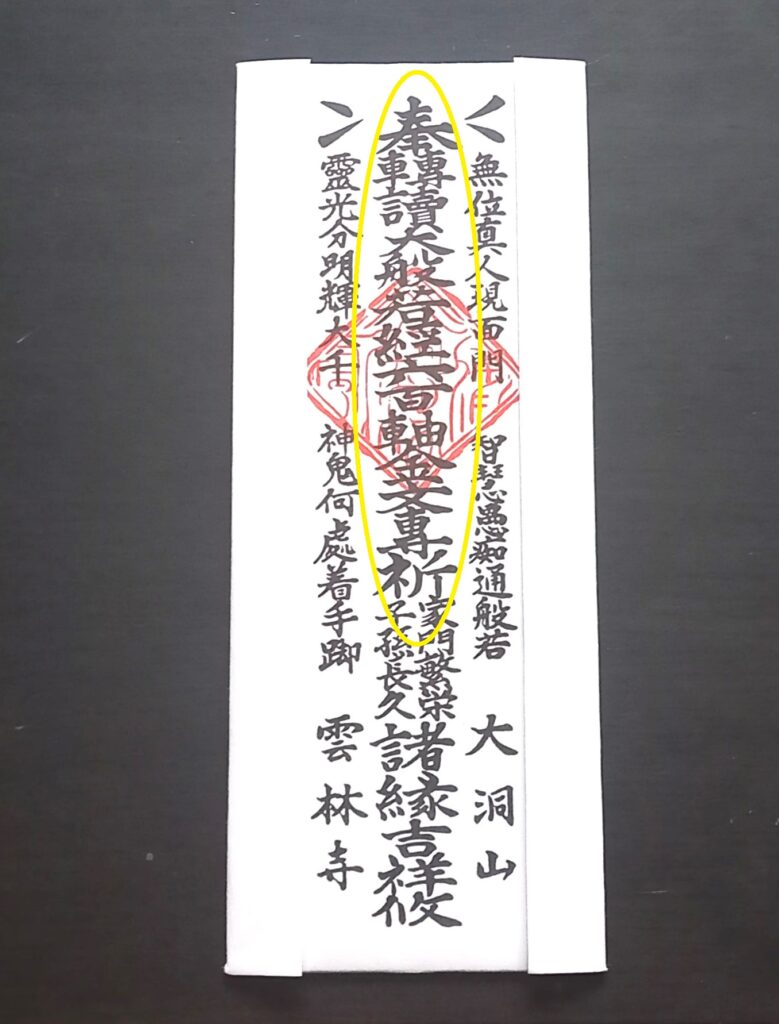 無位真人現面門 智慧愚痴通般若 大洞山
奉轉讀大般若經六百軸金文專祈
家門繁栄
子孫長久
諸縁吉祥攸
靈光分明輝大千 神鬼何處着手踋 雲林寺